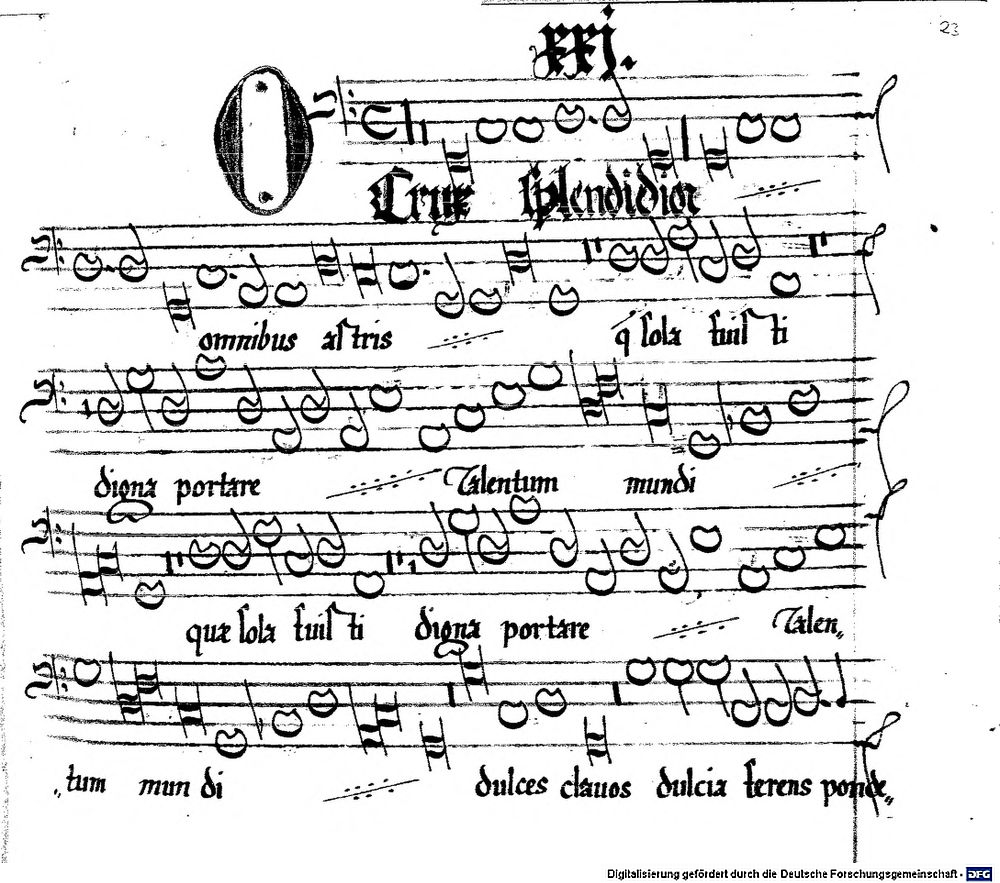 23
xxj.
O
Crux splendidior
omnibus astris q̉ sola fuisti
digna portare Talentum mundi
quæ sola fuisti digna portare Talen„
„tum mundi dulces clauos dulcia ferens ponde„
Digitalisierung gefördert durch die Deutsche Forschungsgemeinschaft - DFG